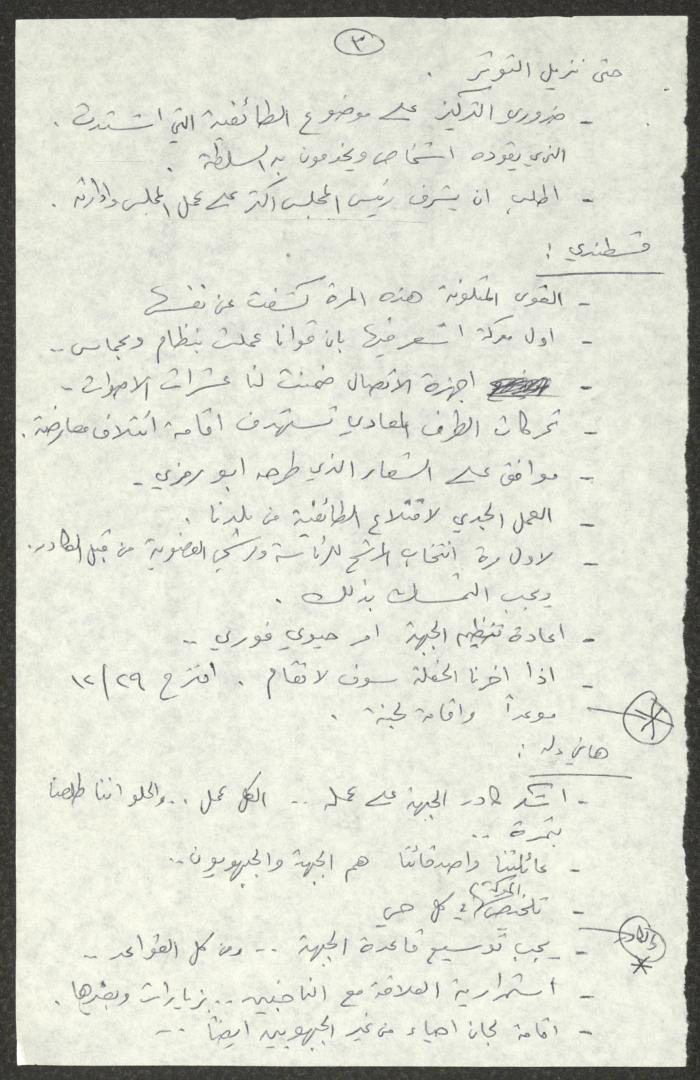 ٣
حتى نزيل التوتر .
- ضروري التركيز على موضوع الطائفية التي اشتدت .
الذي يقوده اشخاص ويخدمون به السلطة .
- اطلب ان يشرف رئيس المجلس اكثر على عمل المجلس وادارته .
قسطندي :
- القوى المتلونة هذه المرة كشفت عن نفسها
- اول معركة اشعر فيها بان قوانا عملت بنظام وبحماس ..
- اجهزة الاتصال ضمنت لنا عشرات الاصوات ..
- تحركات الطرف المعادي تستهدف اقامة ائتلاف معارضة .
- موافق على الشعار الذي طرحه ابو رمزي ..
- العمل الجدي لاقتلاع الطائفية من بلدنا .
- لاول مرة انتخاب المرشح للرئاسة ومرشحي العضوية من قبل الكادر .
ويجب التمسك بذلك .
- اعادة تنظيم الجبهة امر حيوي فوري ..
- اذا اخرنا الحفلة سوف لا تقام . اقترح ١٢/٢٩
موعداً واقامة لجنة .
هاني دله :
- اشكر كادر الجبهة على عمله .. الكل عمل .. والحلو اننا طلعنا
بثمرة ..
- عائلتنا واصدقائنا هم الجبهة والجبهويون ..
- تلخيص المعركة في كل حي
- يجب توسيع قاعدة الجبهة .. ومن كل القواعد ..
والكادر
- استمرارية العلاقة مع الناخبين .. بزيارات وبغيرها .
- اقامة لجان احياء من غير الجبهويين ايضاً ..